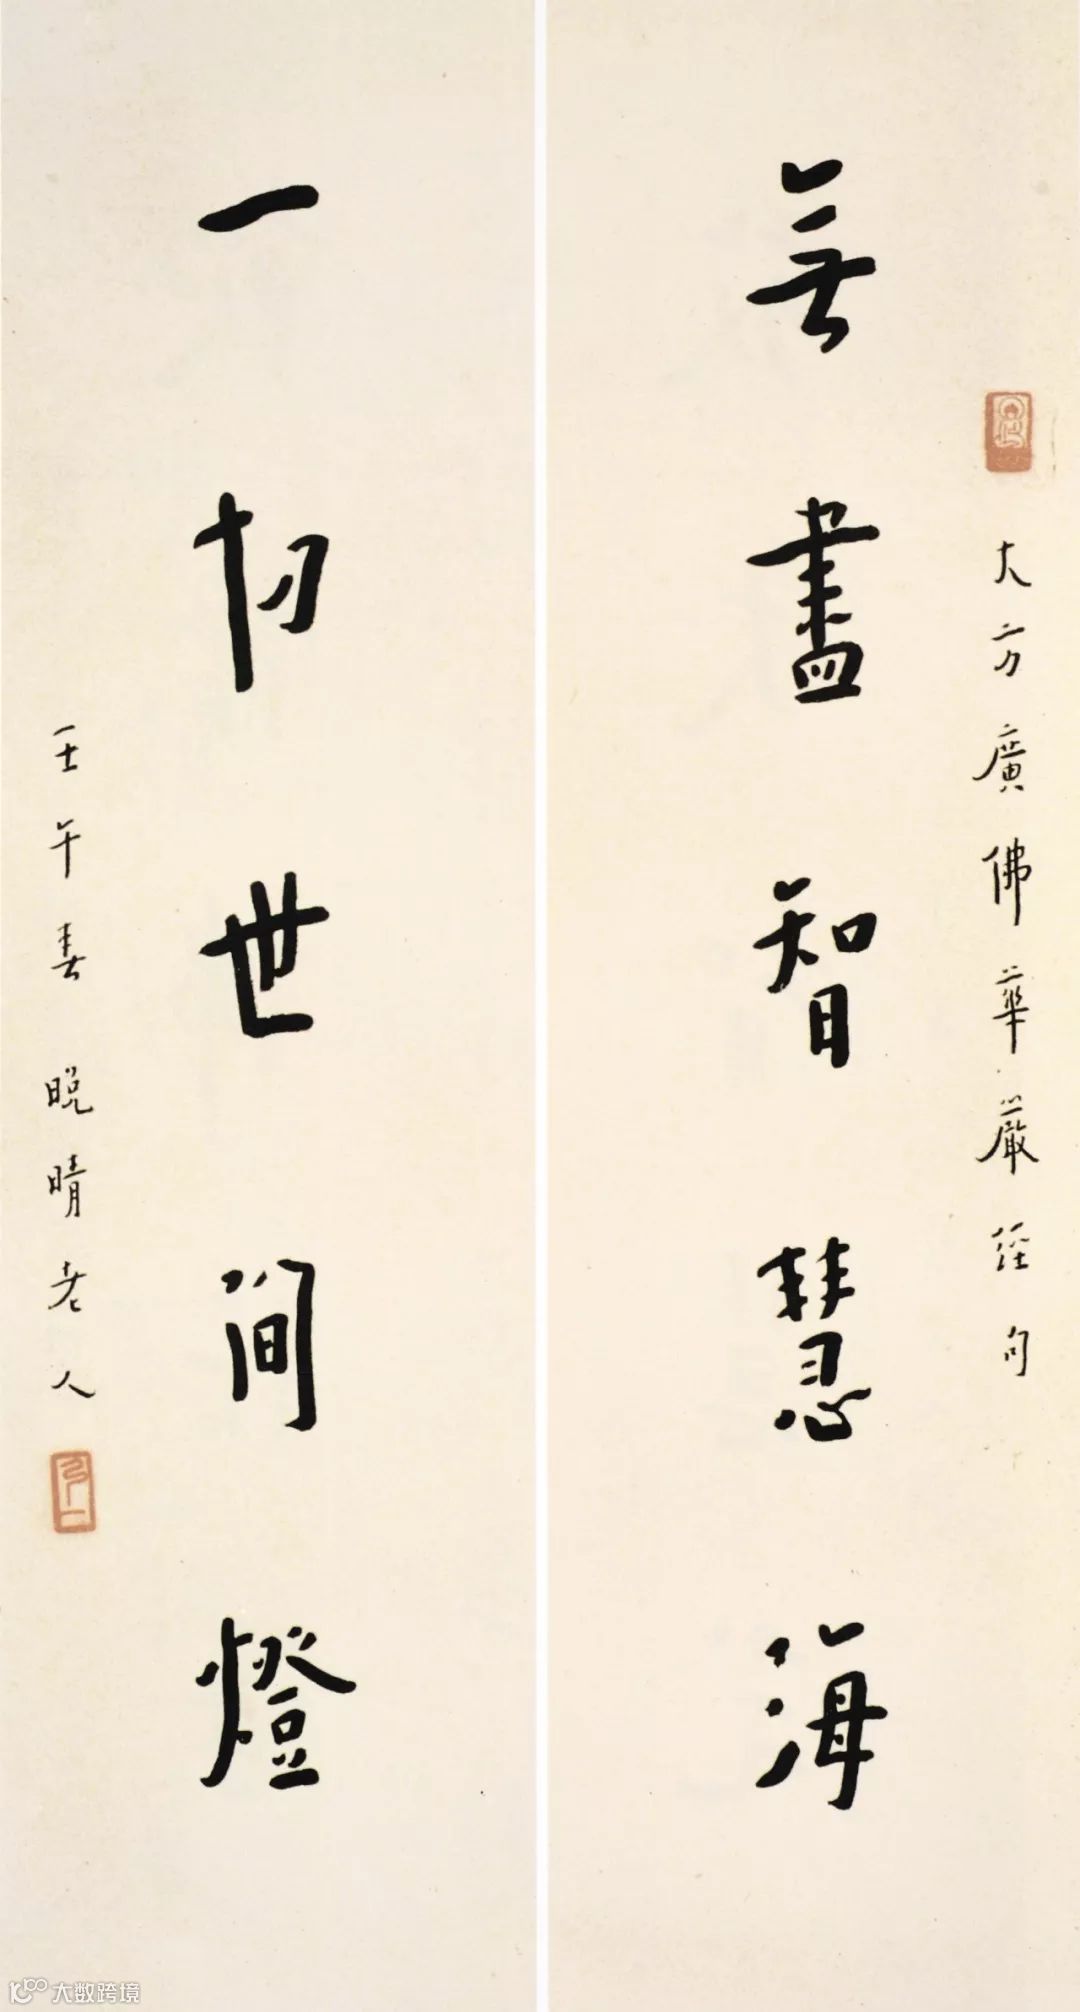 大方廣佛華嚴經句
无盡智慧海
一切世間燈
壬午春 晚晴老人
大数跨境